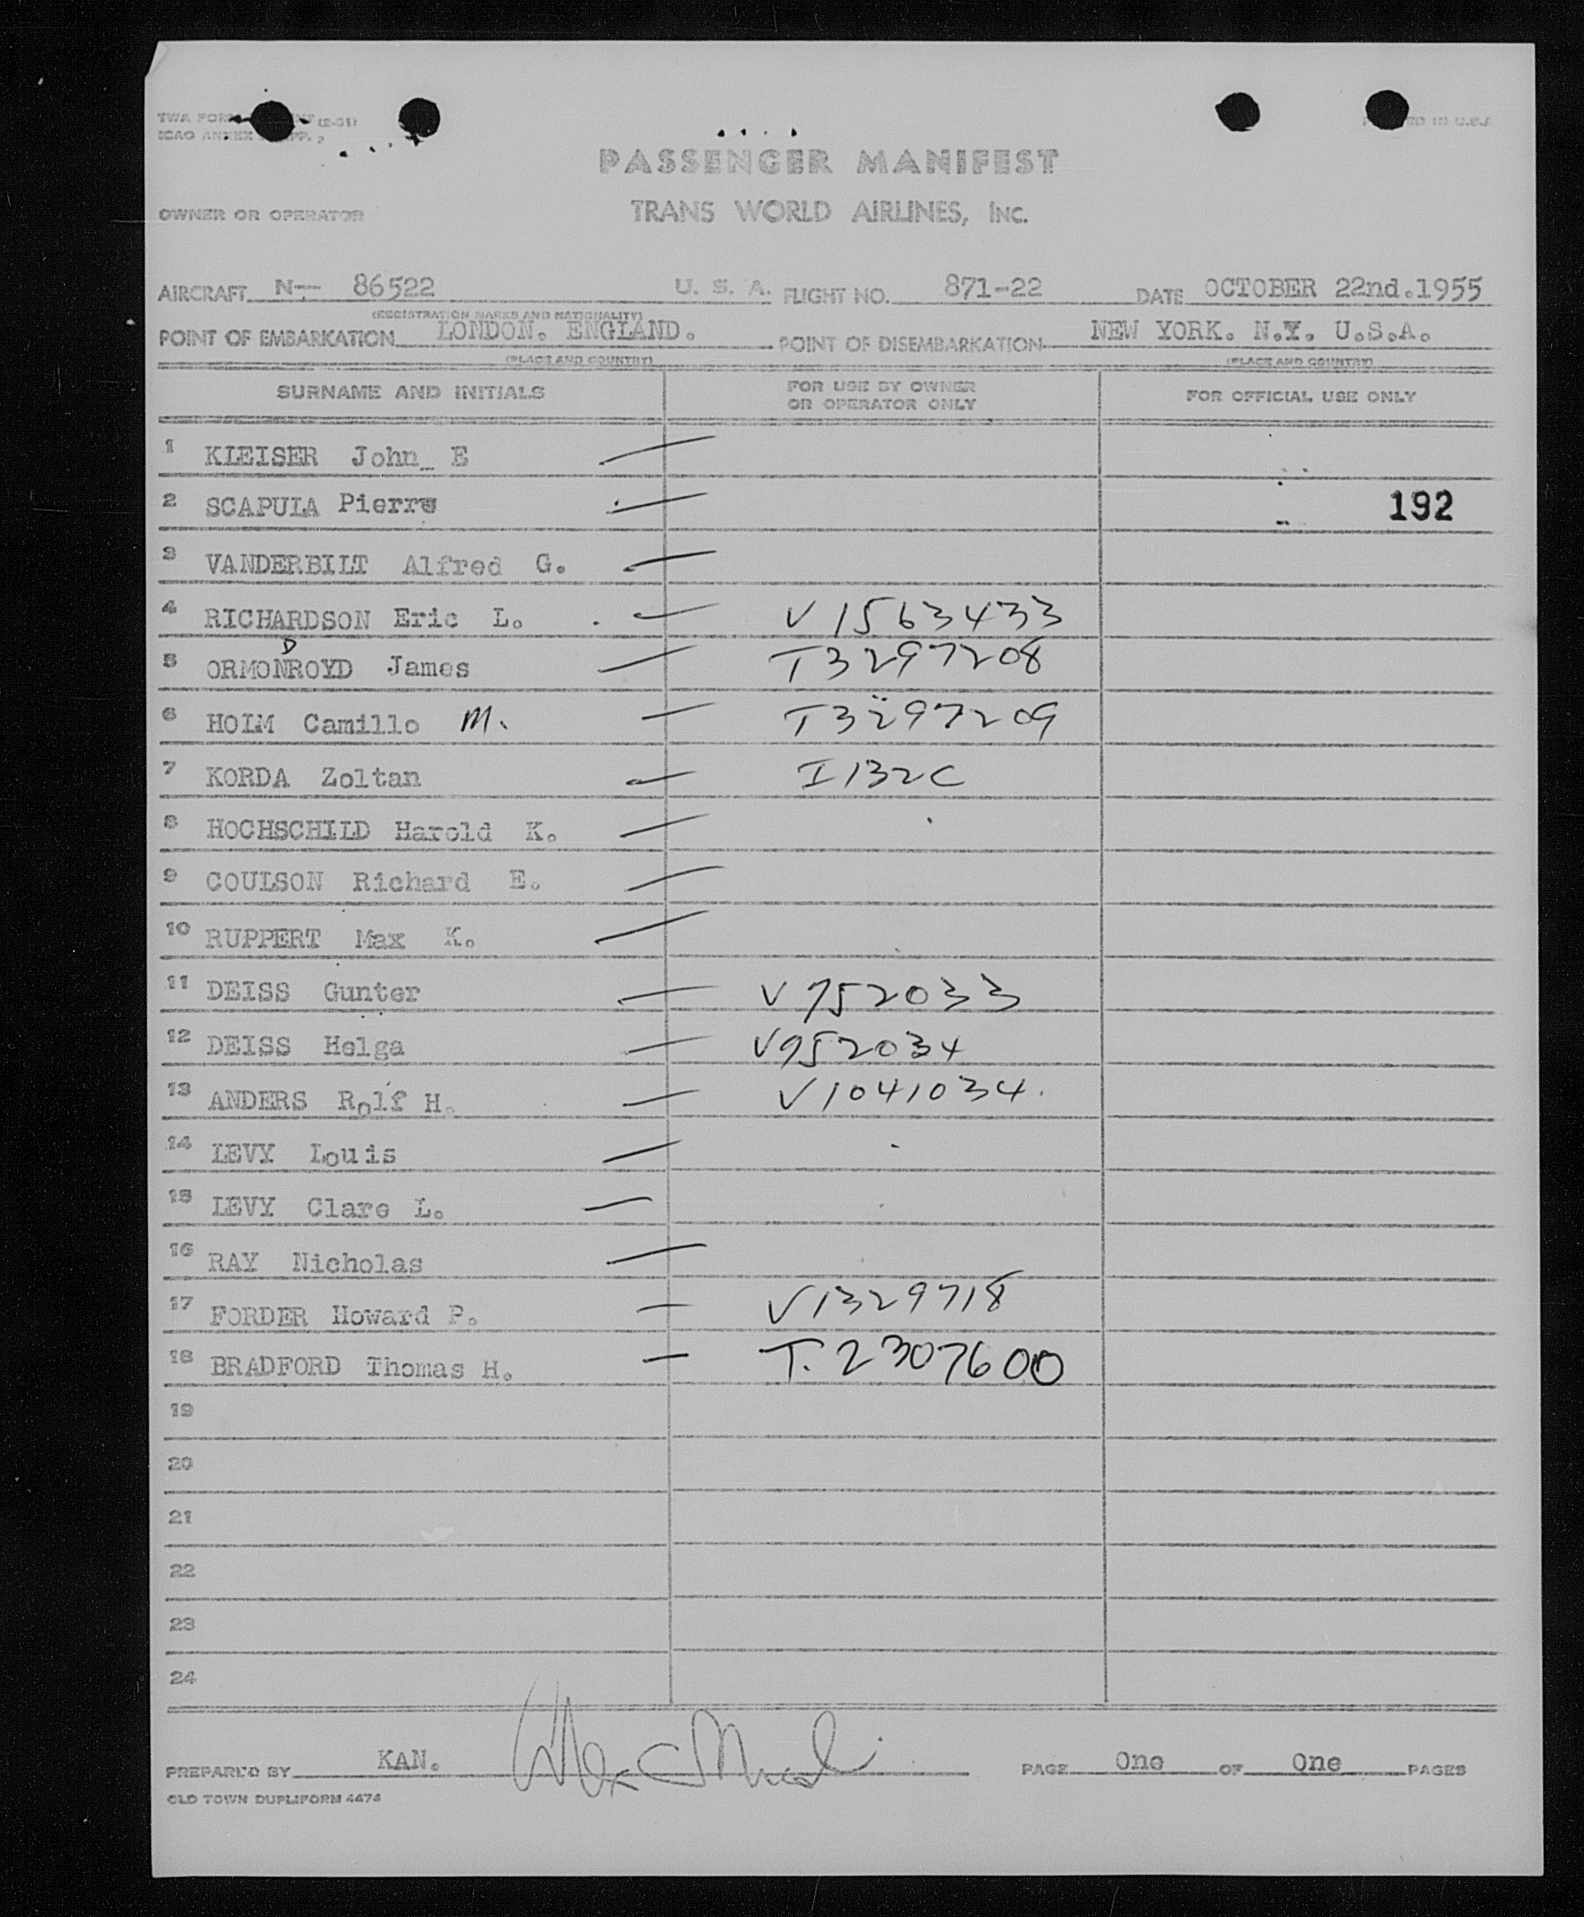 TWA FORM (2-51)
ICAO ANNEX
PRINTED IN U.S.A
PASSENGER MANIFEST
OWNER OR OPERATOR TRANS WORLD AIRLINES, INC.
AIRCRAFT N-- 86522 U. S. A. FLIGHT NO. 871-22 DATE OCTOBER 22nd.1955
(REGISTRATION MARKS AND NATIONALITY)
POINT OF EMBARKATION LONDON. ENGLAND. POINT OF DISEMBARKATION NEW YORK. N.Y. U.S.A.
(PLACE AND COUNTRY) (PLACE AND COUNTRY)
SURNAME AND INITIALS FOR USE BY OWNER OR OPERATOR ONLY FOR OFFICIAL USE ONLY
1 KLEISER John E
2 SCAPULA Pierre 192
3 VANDERBILT Alfred G.
4 RICHARDSON Eric L. V1563433
D
5 ORMONROYD James T3297208
6 HOLM Camillo M. T3297209
7 KORDA Zoltan I132C
8 HOCHSCHILD Harold K.
9 COULSON Richard E.
10 RUPPERT Max K.
11 DEISS Gunter V752033
12 DEISS Helga V952034
13 ANDERS Rolf H. V1041034.
14 LEVY Louis
15 LEVY Clare L.
16 RAY Nicholas
17 FORDER Howard P. V1329718
18 BRADFORD Thomas H. T. 2307600
19
20
21
22
23
24
PREPARED BY KAN. PAGE One OF One PAGES
OLD TOWN DUPLIFORM 4474